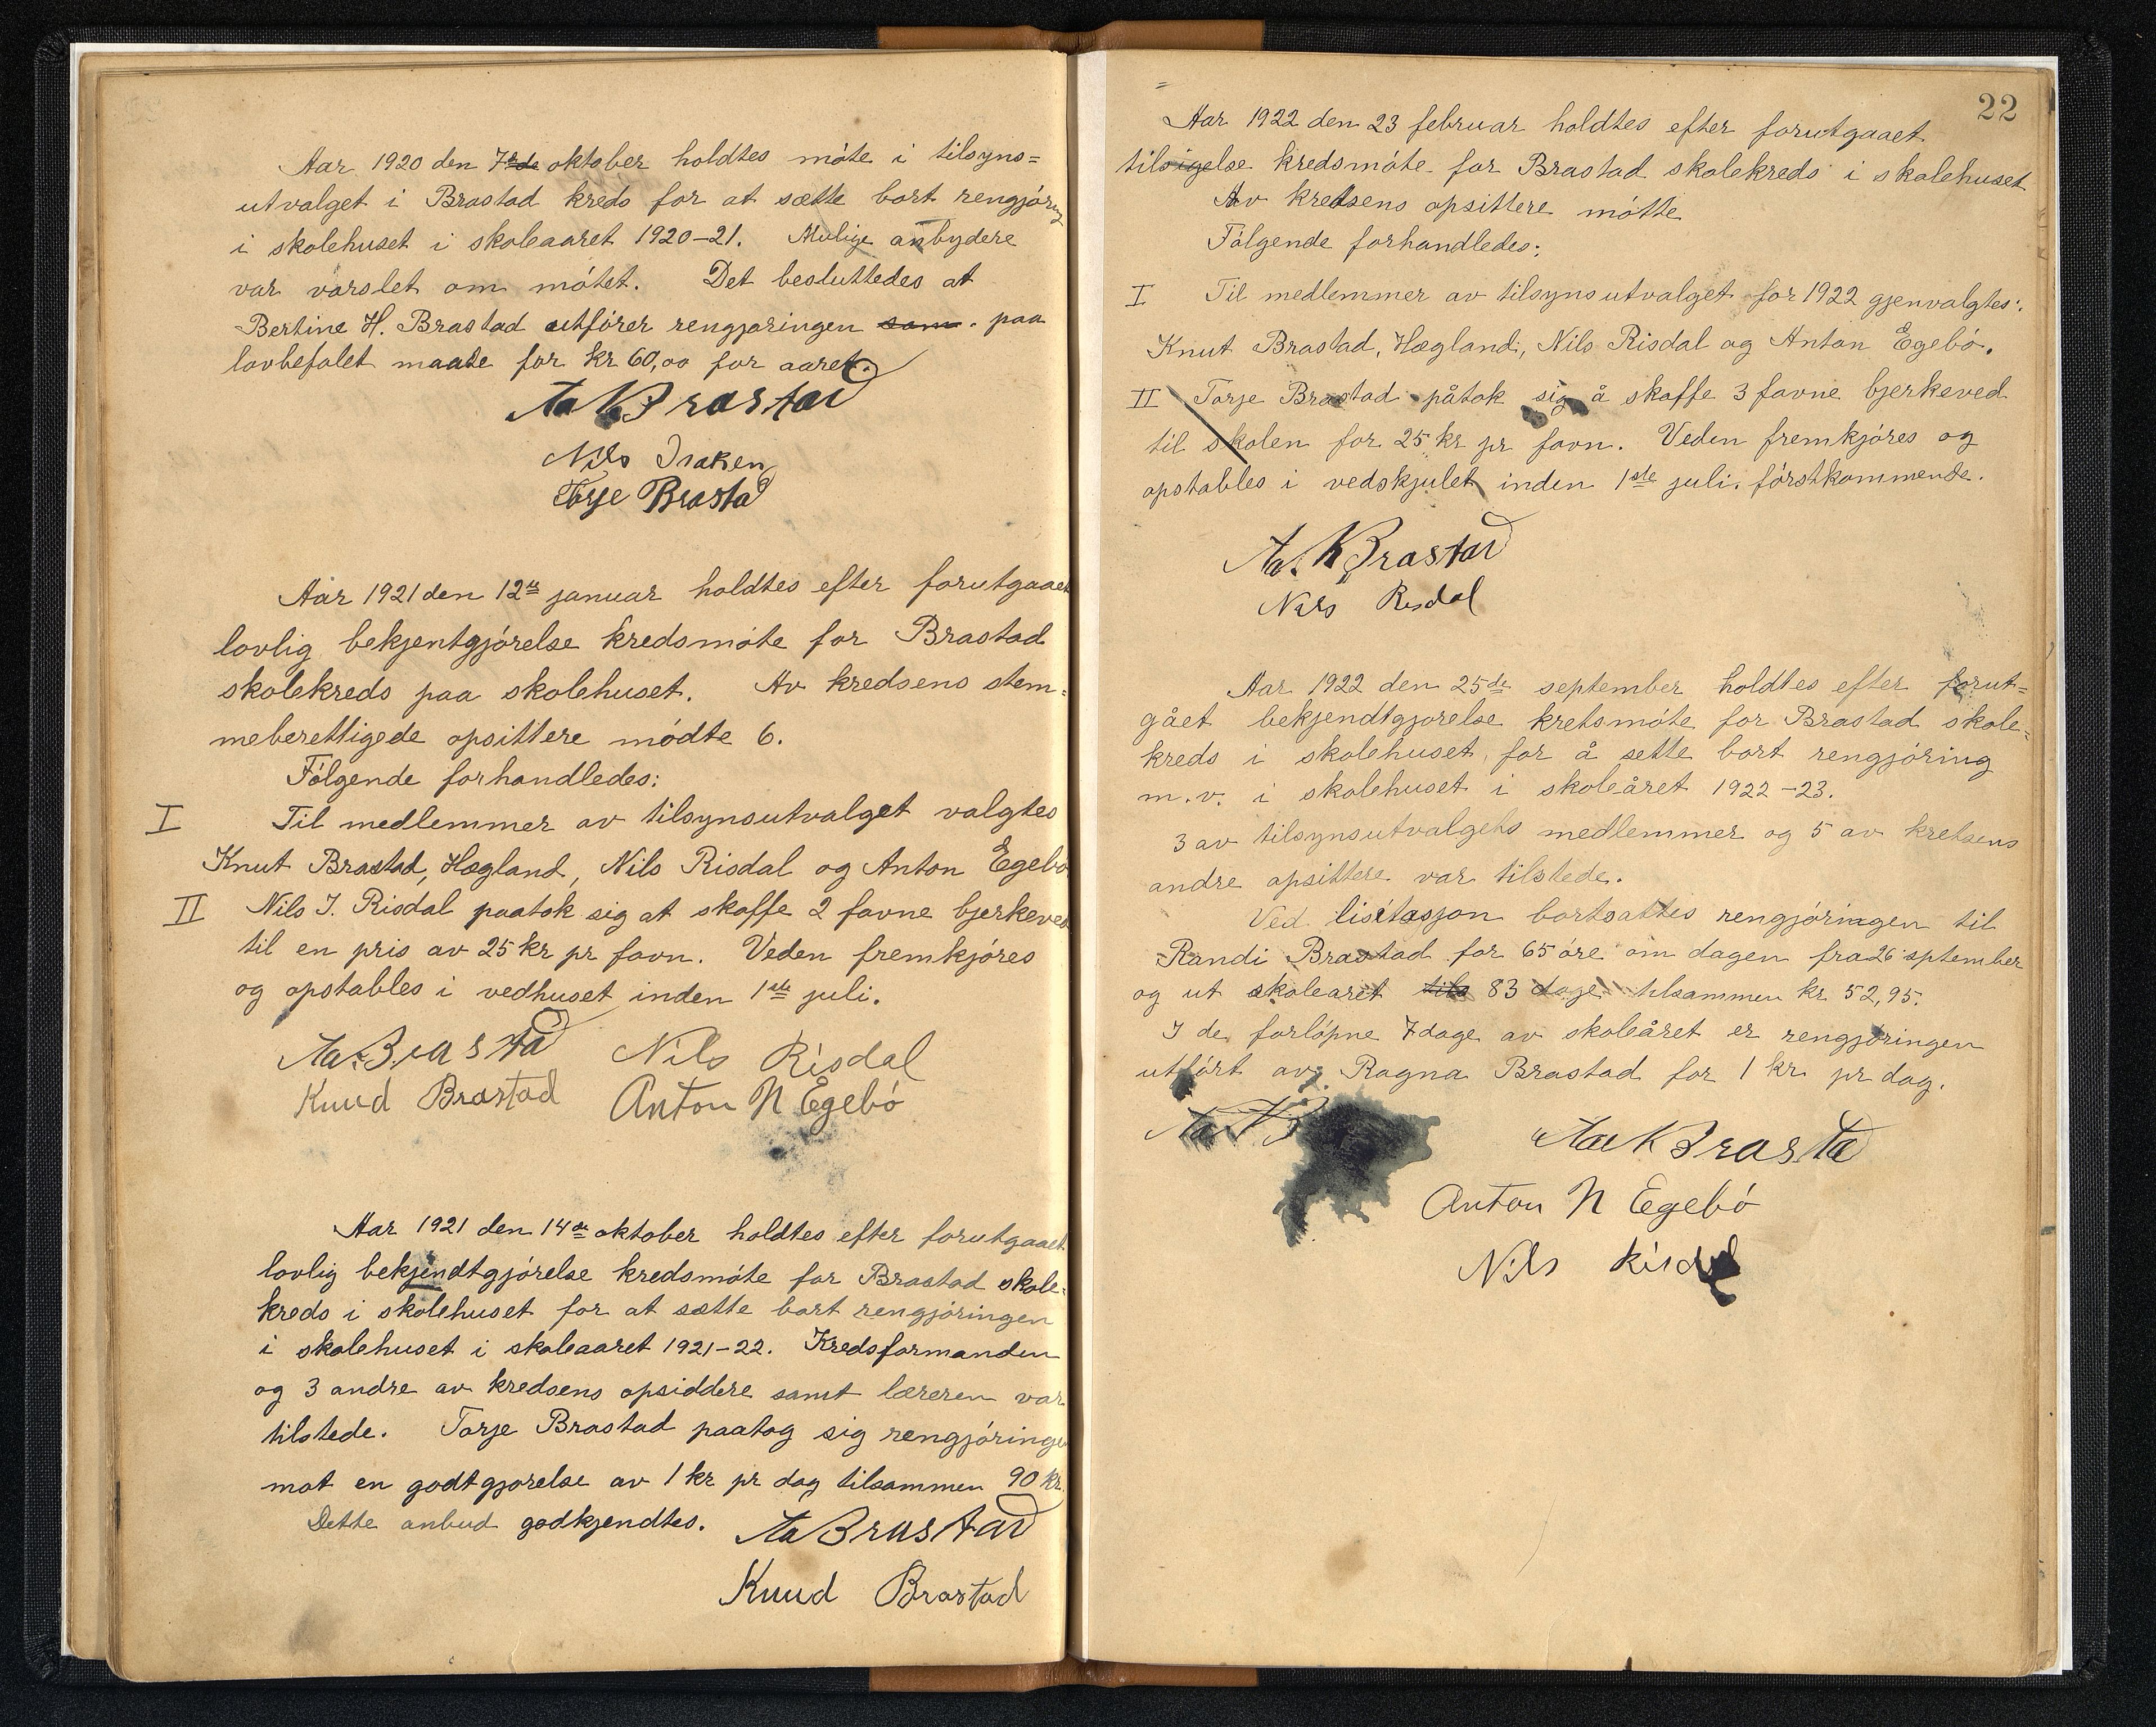 Aar 1920 den 7de oktober holdtes móte i tilsyns=
utvalget i Brastad kreds for at sætte bort rengjóring
i skolehuset i skoleaaret 1920-21. Mulige anbydere
var varslet om mótet. Det besluttedes at
Bertine H. Brastad utfórer rengjøringen som. paa
lovbefalet maate for kr 60,00 for aaret.
Aa K Brastad
Nils Isaksen
Torje Brastad
Aar 1921 den 12te januar holdtes efter forutgaaet
lovlig bekjentgjórelse kredsmóte for Brastad
skolekreds paa skolehuset. Av kredsens stem=
meberettigede opsittere módte 6.
Fólgende forhandledes:
I Til medlemmer av tilsynsutvalget valgtes
Knut Brastad, Hægland, Nils Risdal og Anton Egebó
II Nils I. Risdal paatok sig at skaffe 2 favne bjerkeved
til en pris av 25 kr pr favn. Veden fremkjóres
og opstables i vedhuset inden 1ste juli.
Aa. Brastad Nils Risdal
Knud Brastad Anton N Egebó
Aar 1921 den 14de oktober holdtes efter forutgaaet
lovlig bekjendtgjórelse kredsmóte for Brastad skole=
kreds i skolehuset for at sætte bort rengjóringen
i skolehuset i skoleaaret 1921-22. Kredsformanden
og 3 andre av kredsens opsiddere samt læreren var
tilstede. Torje Brastad paatog sig rengjóringen
mot en godtgjorelse av 1 kr pr dag tilsammen 90 kr.
Dette anbud godkjendtes. Aa Brastad
Knud Brastad
22
Aar 1922 den 23 februar holdtes efter forutgaaet
tilsigelse kredsmóte for Brastad skolekreds i skolehuset
Av kredsens opsittere mótte
Fólgende forhandledes:
I Til medlemmer av tilsynsutvalget for 1922 gjenvalgtes:
Knut Brastad, Hægland, Nils Risdal og Anton Egebó.
II Torje Brastad påtok sig å skaffe 3 favne bjerkeved
til skolen for 25 kr pr favn. Veden fremkjóres og
opstables i vedskjulet inden 1ste juli. fórstkommende.
Aa. K Brastad
Nils Risdal
Aar 1922 den 25de september holdtes efter forut=
gået bekjendtgjorelse kretsmóte for Brastad skole=
kreds i skolehuset for å sette bort rengjóring
m.v. i skolehuset i skoleåret 1922-23.
3 av tilsynsutvalgets medlemmer og 5 av kretsens
andre opsittere var tilstede.
Ved lisitasjon bortsattes rengjóringen til
Randi Brastad for 65 óre om dagen fra 26 sptember
og ut skolearet tils 83 dage tilsammen kr 52,95.
I de forlópne 7 dage av skoleåret er rengjóringen
utfórt av Ragna Brastad for 1 kr pr dag.
Aa K B
Aa K Brastad
Anton N Egebó
Nils Risdal